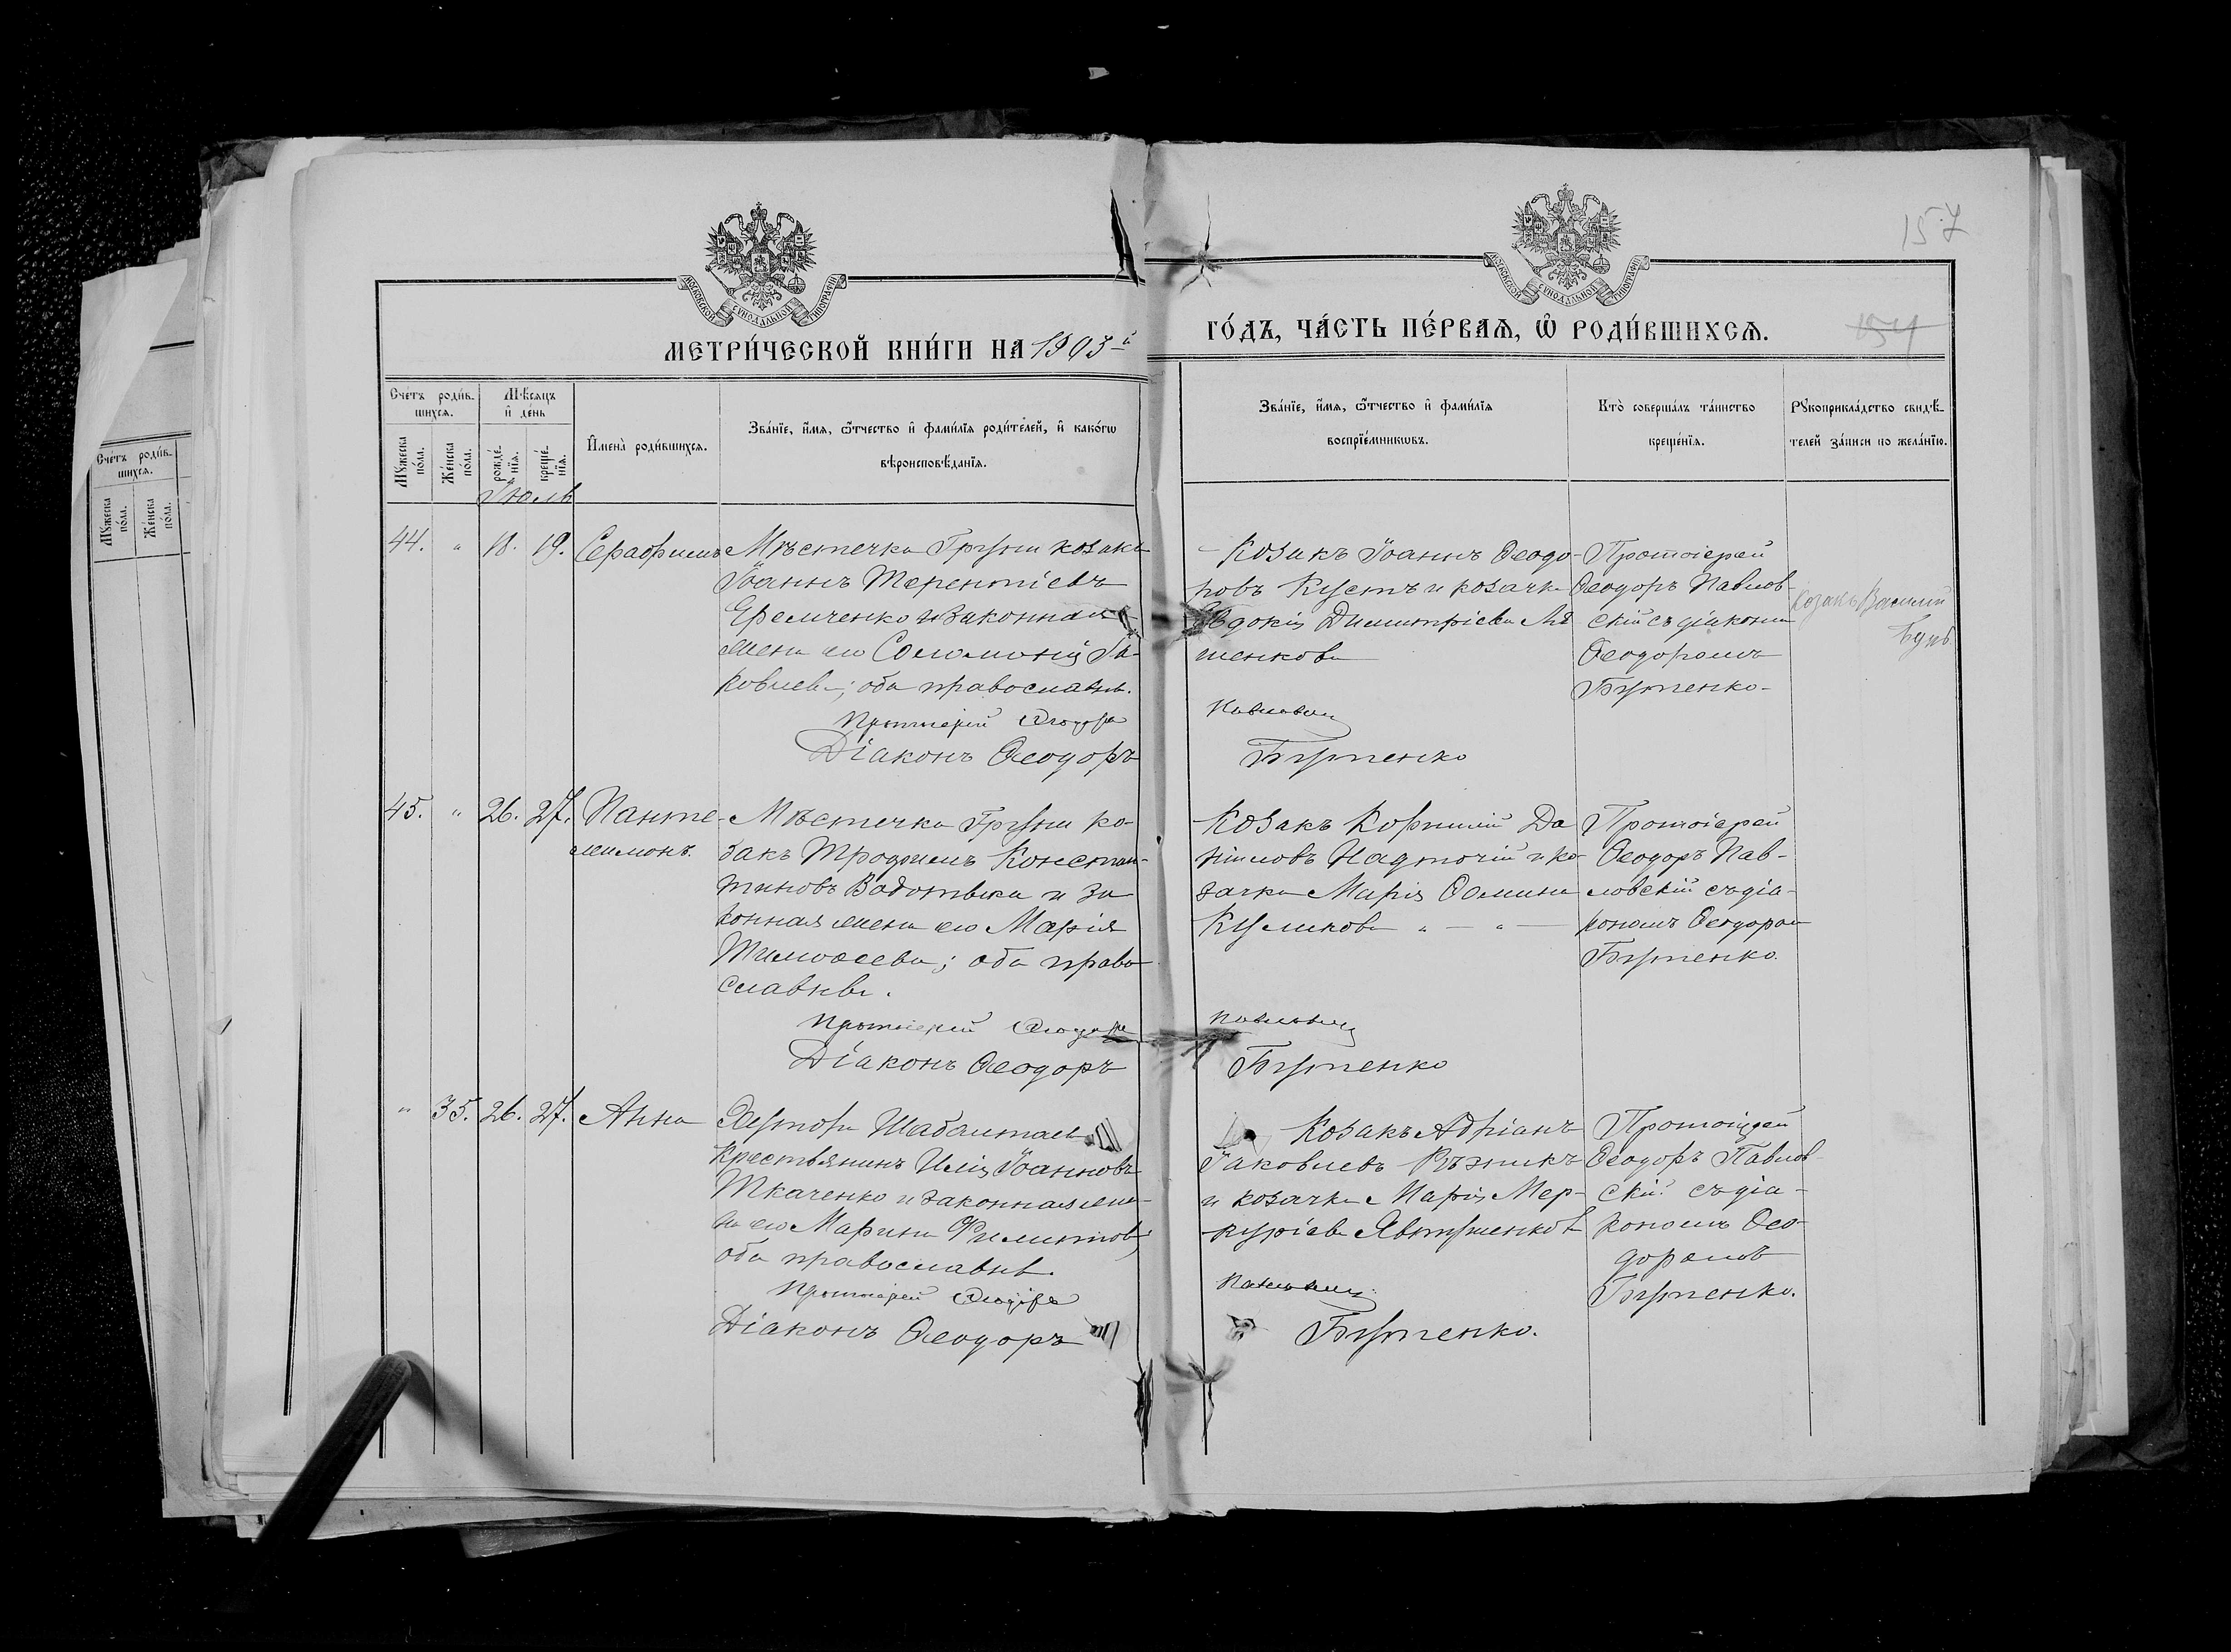 157
154
МОСКОВСКОЙ СѴНОДАЛЬНОЙ ТИПОГРАФІИ
МОСКОВСКОЙ СѴНОДАЛЬНОЙ ТИПОГРАФІИ
МЕТРИ́ЧЕСКОЙ КНИ́ГИ НА 1903-й
ГО́ДЪ, ЧА́СТЬ ПЕ́РВАѦ, Ѡ҆ РОДИ́ВШИХСѦ.
Сче́тъ роди́в-
шихсѧ.
Мꙋ́жеска по́ла.
Же́нска по́ла.
Мѣ́сѧцъ
и҆ де́нь
рожде́-нїѧ.
креще́-нїѧ.
И҆мена̀ роди́вшихсѧ.
Зва́нїе, и҆́мѧ, ѻ҆́тчество и҆ фами́лїѧ роди́телей, и҆ како́гѡ
вѣроисповѣ́данїѧ.
Зва́нїе, и҆́мѧ, ѻ҆́тчество и҆ фами́лїѧ
воспрїе́мникѡвъ.
Кто̀ соверша́лъ та́инство
креще́нїѧ.
Рꙋкоприкла́дство свидѣ́-
телей за́писи по жела́нїю.
Сче́тъ роди́в-
шихсѧ.
Мꙋ́жеска по́ла.
Же́нска по́ла.
Іюль
44. " 18. 19. Серафимъ
Мѣстечка Груни козакъ
Іоаннъ Терентіевъ
Еремченко и законная
жена его Соломонія Іа-
ковлева; оба православн.
Протоіерей Ѳеодоръ
Діаконъ Ѳеодоръ
Козакъ Іоаннъ Ѳеодо-
ровъ Кустъ и козачка
Евдокія Димитріева Ля
шенкова
Павловскій
Бутенко
Протоіерей
Ѳеодоръ Павлов-
скій съ діакономъ
Ѳеодоромъ
Бутенко-
Козакъ Василій
45. " 26. 27. Панте-
леимонъ.
Мѣстечка Груни ко-
закъ Трофимъ Констан-
тиновъ и за
конная жена его Марія
Тимоѳеева; оба право-
славные.
Протоіерей Ѳеодоръ
Діаконъ Ѳеодоръ
Козакъ Корнилій Да
ніиловъ Надточій и ко-
зачка Марія Ѳомина
Куликова " — " —
Павловскій
Бутенко
Протоіерей
Ѳеодоръ Пав-
ловскій съ діа-
кономъ Ѳеодоромъ
Бутенко.
" 35. 26. 27. Анна
Хутора Шабалтаев
крестьянинъ Илія Іоанновъ
Ткаченко и законная же-
на его Марина Филиппова
оба православные.
Протоіерей Ѳеодоръ
Діаконъ Ѳеодоръ
Козакъ Адріанъ
Іаковлевъ Рѣзникъ
и козачка Марія Мер-
куріева Явтушенкова
Павловскій
Бутенко.
Протоіерей
Ѳеодоръ Павлов-
скій съ діа-
кономъ Ѳео-
доромъ
Бутенко.